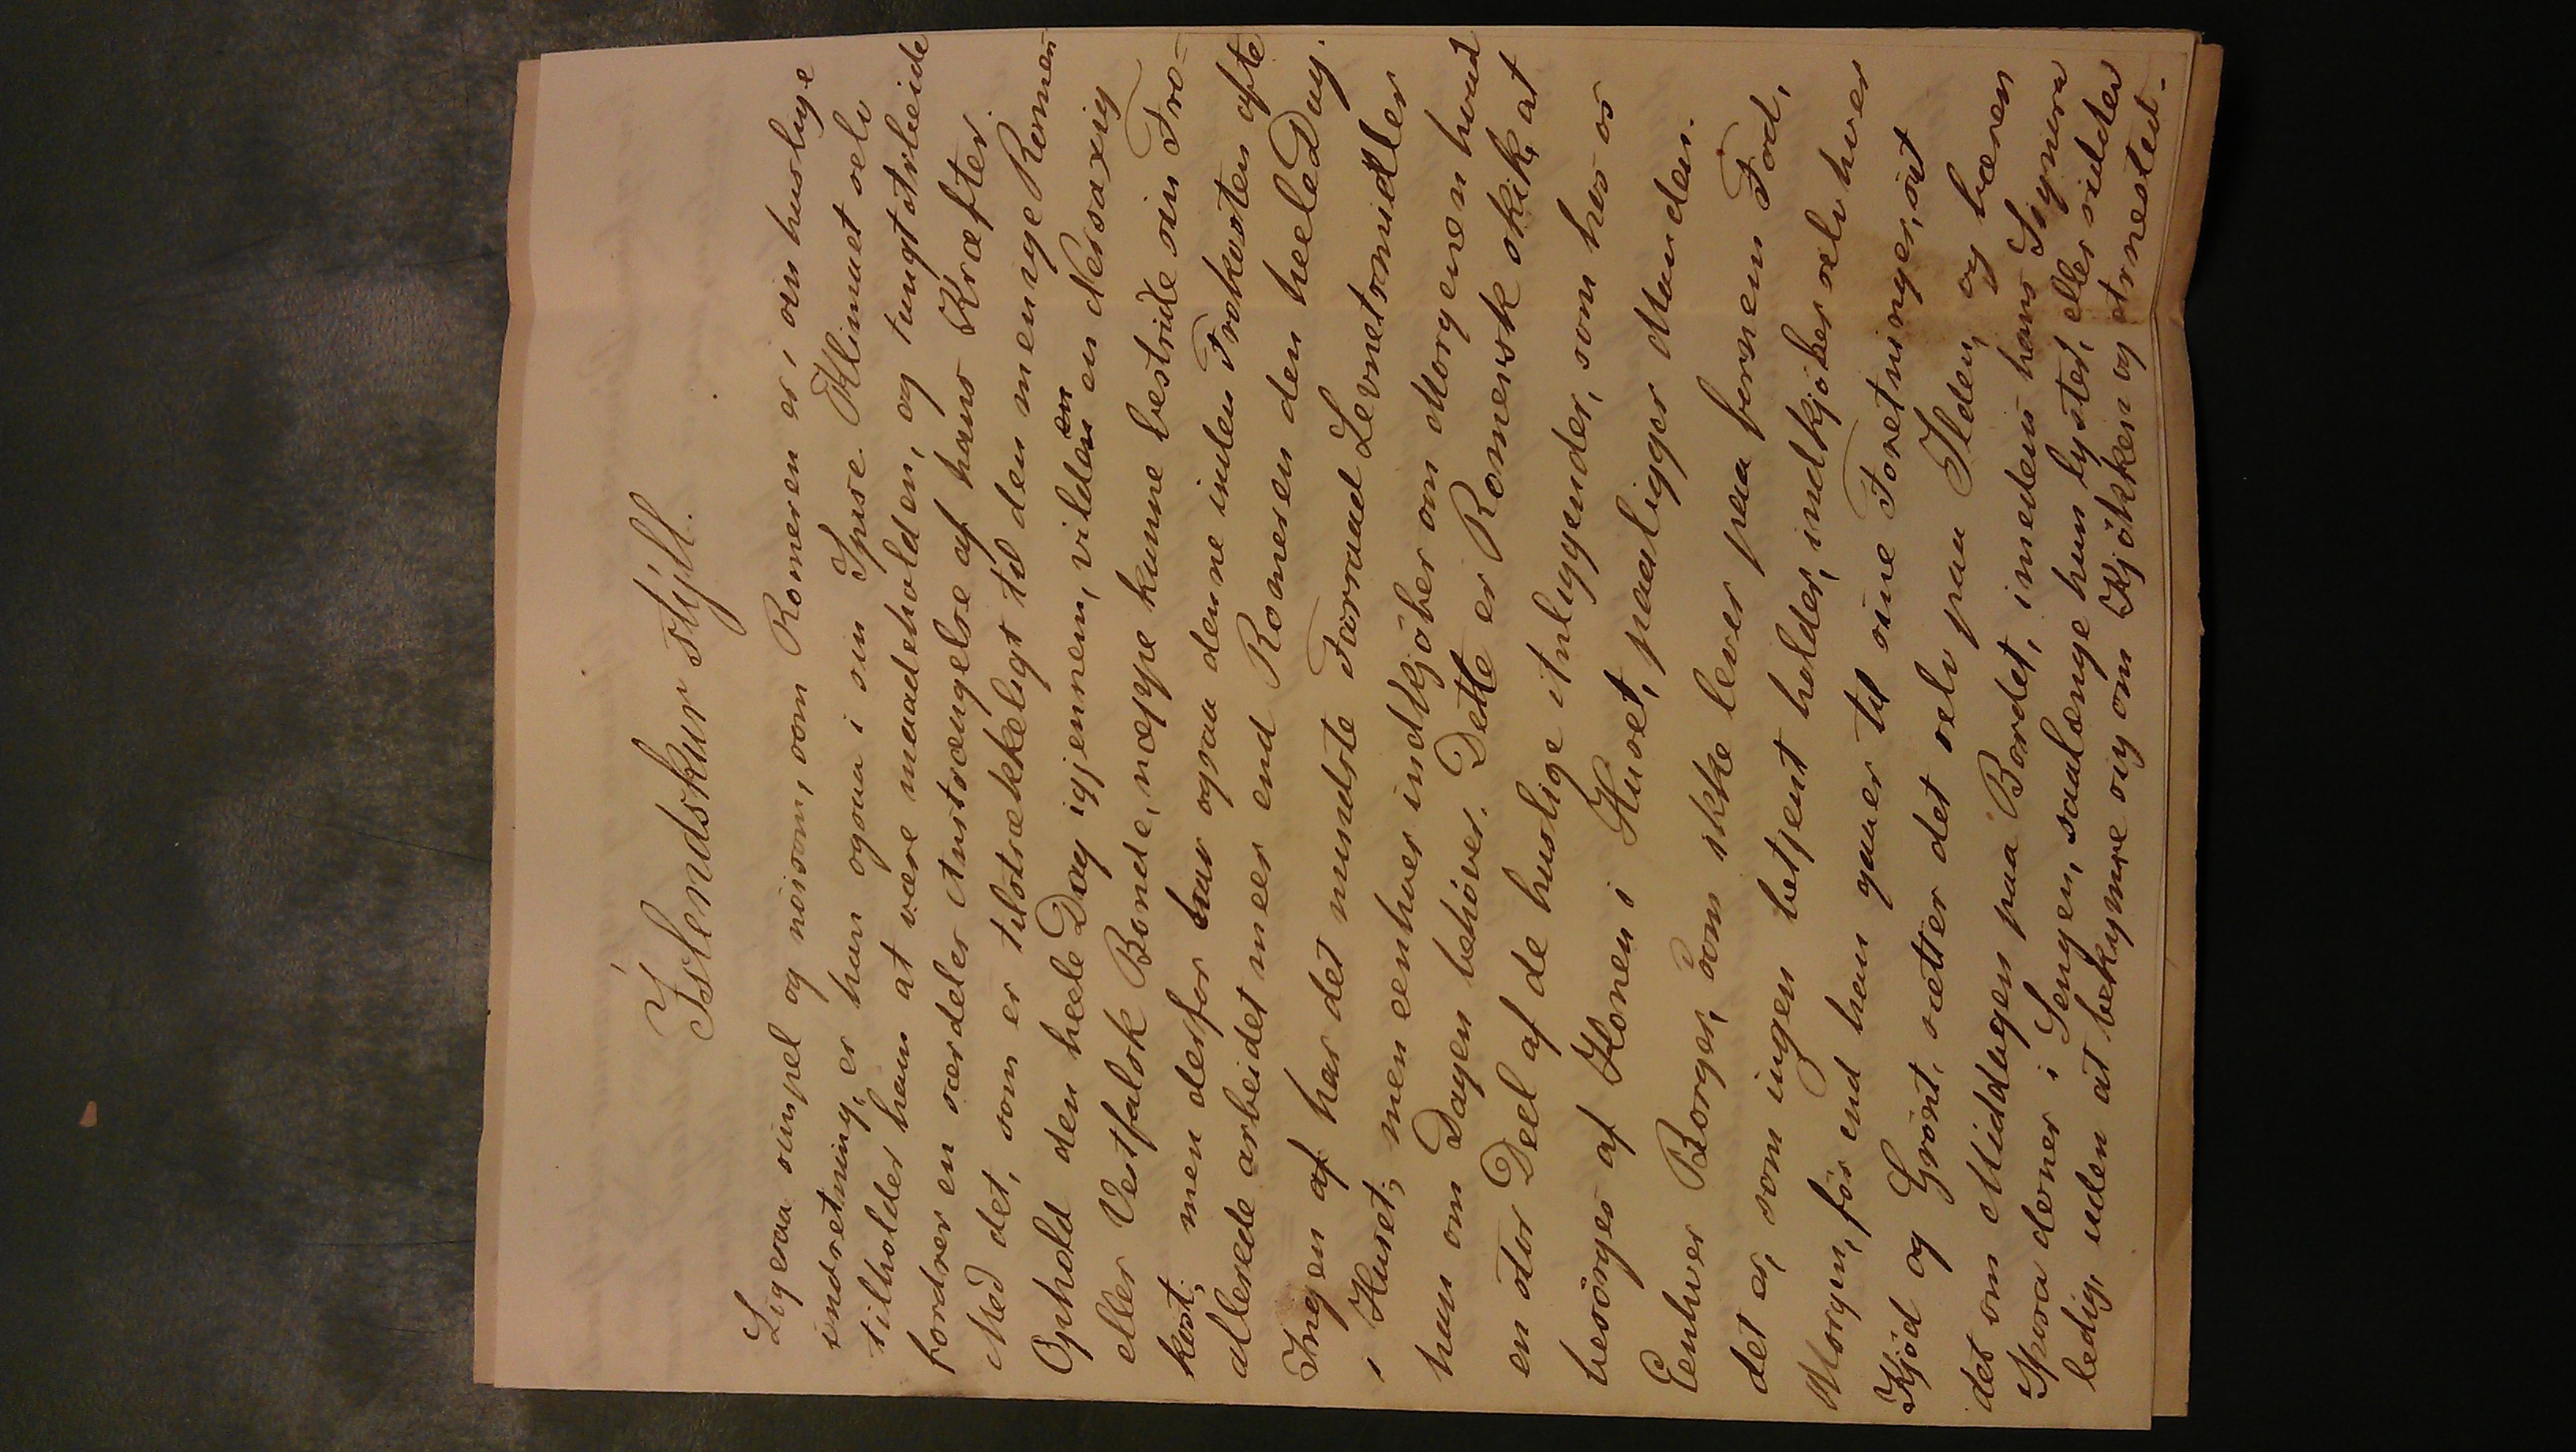 Íslendskur stýll.
Ligesaa simpel og nöisom, som Romeren er i sin huslige
indretning, er han ogsaa i sin Spise. Klimaet selv
tilholder ham at være maadeholden, og tungt Arbeide
fordrer en særdeles Anstrængelse af hans Kræfter.
Med det, som er tilstrækkeligt til den menige Romers
Ophold den heele Dag igjennem, vilde en Nersaxig
eller Vestfalsk Bonde, neppe kunne bestride sin Fro-
kost; men derfor har ogsaa denne inden Frokosten ofte
allerede arbeidet meer end Romeren den heele Dag.
Ingen af har det mindste Forraad Levnetsmidler
i Huset; men eenhver indkjöber om Morgenen hvad
han om Dagen behöver. Dette er Romersk skik, at
en stor Deel af de huslige Anliggender, som hos os
besörges af Konen i Huset, paaligger Manden.
Eenhver Borger, som ikke lever paa fornem Fod,
det er, som ingen betjent holder, indkjöber selv hver
Morgen, för end han gaaer til sine Foretninger, sit
Kjöd og Grönt, sætter det selv paa Ilden, og bæren
det om Middagen paa Bordet, imedens hans Signura
Sposa dorner i Sengen, saalænge hun lyster, eller sidder
ledig, uden at bekymre sig om Kjökken og Arnested.